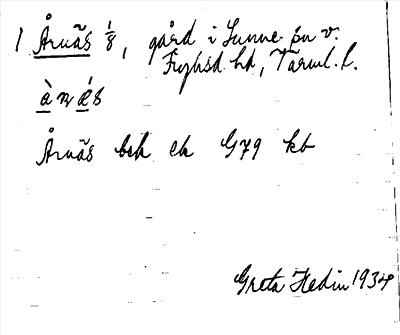 1 Årnäs 1/8, gård i Sunne sn v.
Fryksd hd, Värml. l.
à n ǽ s
Årnäs bek ek G79 kb
Greta Hedin 1934